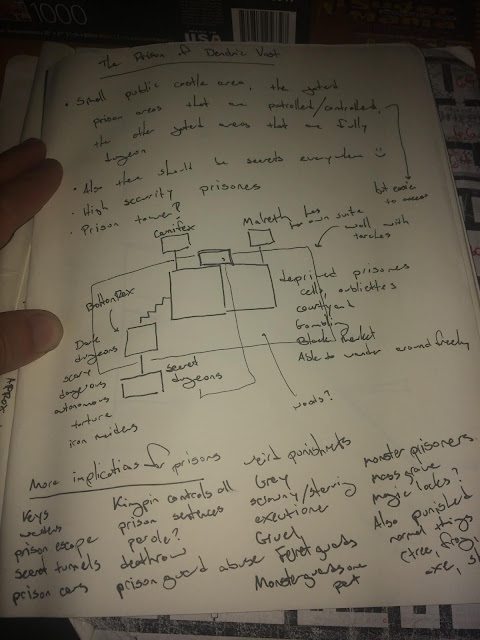 1000
USA
The Prison of Dendric Vost
• Small public castle area, the gated
prison areas that are patrolled/controlled,
the other gated areas that are fully
dungeon
• Also there should be secrets everywhere
• High security prisones
• Prison tower?
but easier
to access
Carnifex
Malreth has
her own suite
wall with
torches
BottomRax
Dark
dungeons
scary
dangerous
autonomous
torture
iron maidens
secret
dungeons
deprived prisones
cells, oubliettes
courtyard
Gambling
Black Market
Able to wander around freely
woods?
More implications for prisons
Keys
wardens
prison escape
secret tunnels
prison cans
Kingpin controls all
prison sentences
parole?
deathrow
prison guard abuse
weird punishments
Grey
scrawny/starving
executioner
Gruel
Ferret guards
Monster guards one
part
monster prisoners
mass grave
magic locks?
Also punished
normal things
(tree, frog,
axe,